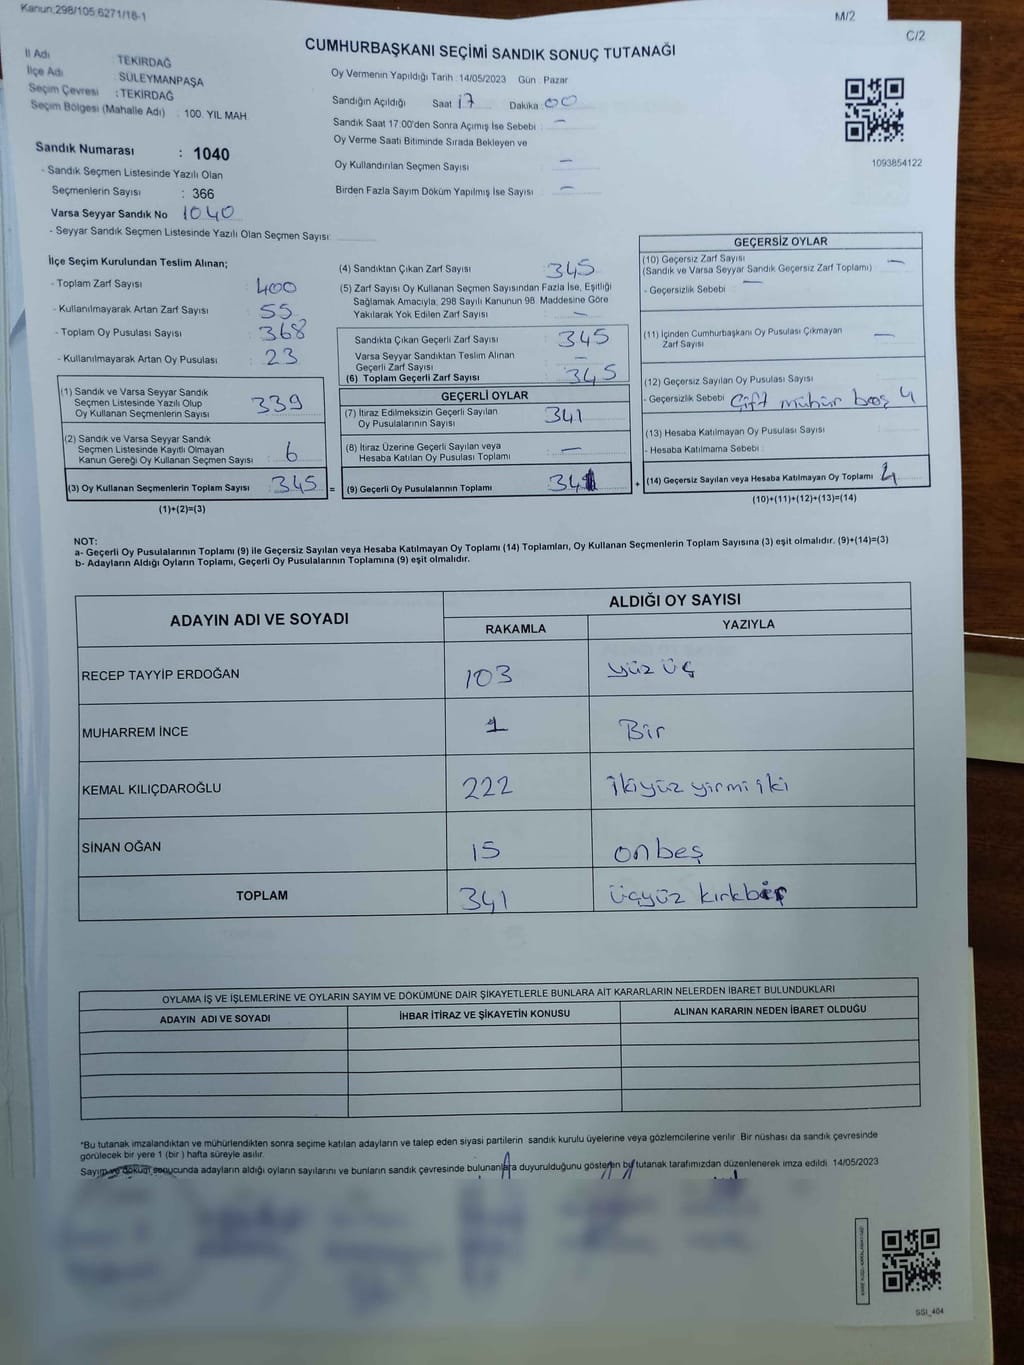 Kanun:298/105.6271/18-1
M/2
C/2
CUMHURBAŞKANI SEÇİMİ SANDIK SONUÇ TUTANAĞI
İl Adı : TEKİRDAĞ
İlçe Adı : SÜLEYMANPAŞA
Seçim Çevresi : TEKİRDAĞ
Seçim Bölgesi (Mahalle Adı) : 100. YIL MAH.
Oy Vermenin Yapıldığı Tarih : 14/05/2023 Gün : Pazar
Sandığın Açıldığı Saat 17 Dakika 00
Sandık Saat 17.00'den Sonra Açımış İse Sebebi : -
Oy Verme Saati Bitiminde Sırada Bekleyen ve
Oy Kullandırılan Seçmen Sayısı -
Birden Fazla Sayım Döküm Yapılmış İse Sayısı -
1093854122
Sandık Numarası : 1040
- Sandık Seçmen Listesinde Yazılı Olan
Seçmenlerin Sayısı : 366
Varsa Seyyar Sandık No 1040
- Seyyar Sandık Seçmen Listesinde Yazılı Olan Seçmen Sayısı:
İlçe Seçim Kurulundan Teslim Alınan;
- Toplam Zarf Sayısı : 400
- Kullanılmayarak Artan Zarf Sayısı : 55
- Toplam Oy Pusulası Sayısı : 368
- Kullanılmayarak Artan Oy Pusulası : 23
(1) Sandık ve Varsa Seyyar Sandık
Seçmen Listesinde Yazılı Olup
Oy Kullanan Seçmenlerin Sayısı : 339
(2) Sandık ve Varsa Seyyar Sandık
Seçmen Listesinde Kayıtlı Olmayan
Kanun Gereği Oy Kullanan Seçmen Sayısı : 6
(3) Oy Kullanan Seçmenlerin Toplam Sayısı : 345 =
(1)+(2)=(3)
(4) Sandıktan Çıkan Zarf Sayısı : 345
(5) Zarf Sayısı Oy Kullanan Seçmen Sayısından Fazla İse, Eşitliği
Sağlamak Amacıyla, 298 Sayılı Kanunun 98. Maddesine Göre
Yakılarak Yok Edilen Zarf Sayısı : -
Sandıkta Çıkan Geçerli Zarf Sayısı : 345
Varsa Seyyar Sandıktan Teslim Alınan
Geçerli Zarf Sayısı : -
(6) Toplam Geçerli Zarf Sayısı : 345
GEÇERLİ OYLAR
(7) İtiraz Edilmeksizin Geçerli Sayılan
Oy Pusulalarının Sayısı : 341
(8) İtiraz Üzerine Geçerli Sayılan veya
Hesaba Katılan Oy Pusulası Toplamı : -
(9) Geçerli Oy Pusulalarının Toplamı : 341 +
GEÇERSİZ OYLAR
(10) Geçersiz Zarf Sayısı
(Sandık ve Varsa Seyyar Sandık Geçersiz Zarf Toplamı) : -
- Geçersizlik Sebebi : -
(11) İçinden Cumhurbaşkanı Oy Pusulası Çıkmayan
Zarf Sayısı : -
(12) Geçersiz Sayılan Oy Pusulası Sayısı :
- Geçersizlik Sebebi : Çift mühür boş 4
(13) Hesaba Katılmayan Oy Pusulası Sayısı :
- Hesaba Katılmama Sebebi :
(14) Geçersiz Sayılan veya Hesaba Katılmayan Oy Toplamı : 4
(10)+(11)+(12)+(13)=(14)
NOT:
a- Geçerli Oy Pusulalarının Toplamı (9) ile Geçersiz Sayılan veya Hesaba Katılmayan Oy Toplamı (14) Toplamları, Oy Kullanan Seçmenlerin Toplam Sayısına (3) eşit olmalıdır. (9)+(14)=(3)
b- Adayların Aldığı Oyların Toplamı, Geçerli Oy Pusulalarının Toplamına (9) eşit olmalıdır.
ADAYIN ADI VE SOYADI ALDIĞI OY SAYISI
RAKAMLA YAZIYLA
RECEP TAYYİP ERDOĞAN 103 yüz üç
MUHARREM İNCE 1 Bir
KEMAL KILIÇDAROĞLU 222 ikiyüz yirmi iki
SİNAN OĞAN 15 onbeş
TOPLAM 341 üçyüz kırkbir
OYLAMA İŞ VE İŞLEMLERİNE VE OYLARIN SAYIM VE DÖKÜMÜNE DAİR ŞİKAYETLERLE BUNLARA AİT KARARLARIN NELERDEN İBARET BULUNDUKLARI
ADAYIN ADI VE SOYADI İHBAR İTİRAZ VE ŞİKAYETİN KONUSU ALINAN KARARIN NEDEN İBARET OLDUĞU
*Bu tutanak imzalandıktan ve mühürlendikten sonra seçime katılan adayların ve talep eden siyasi partilerin sandık kurulu üyelerine veya gözlemcilerine verilir. Bir nüshası da sandık çevresinde
görülecek bir yere 1 (bir) hafta süreyle asılır.
Sayım ve döküm sonucunda adayların aldığı oyların sayılarını ve bunların sandık çevresinde bulunanlara duyurulduğunu gösteren bu tutanak tarafımızdan düzenlenerek imza edildi. 14/05/2023
SSI_404